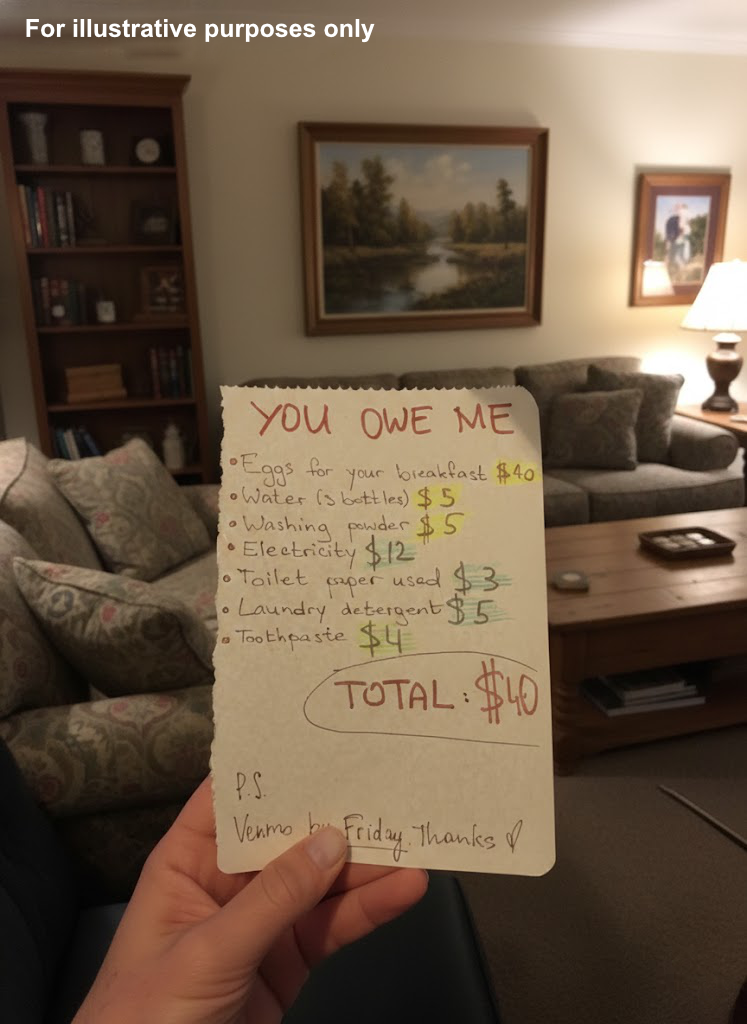 For illustrative purposes only
YOU OWE ME
• Eggs for your breakfast $40
• Water (3 bottles) $5
• Washing powder $5
• Electricity $12
• Toilet paper used $3
• Laundry detergent $5
• Toothpaste $4
TOTAL: $40
P.S.
Venmo by Friday. Thanks